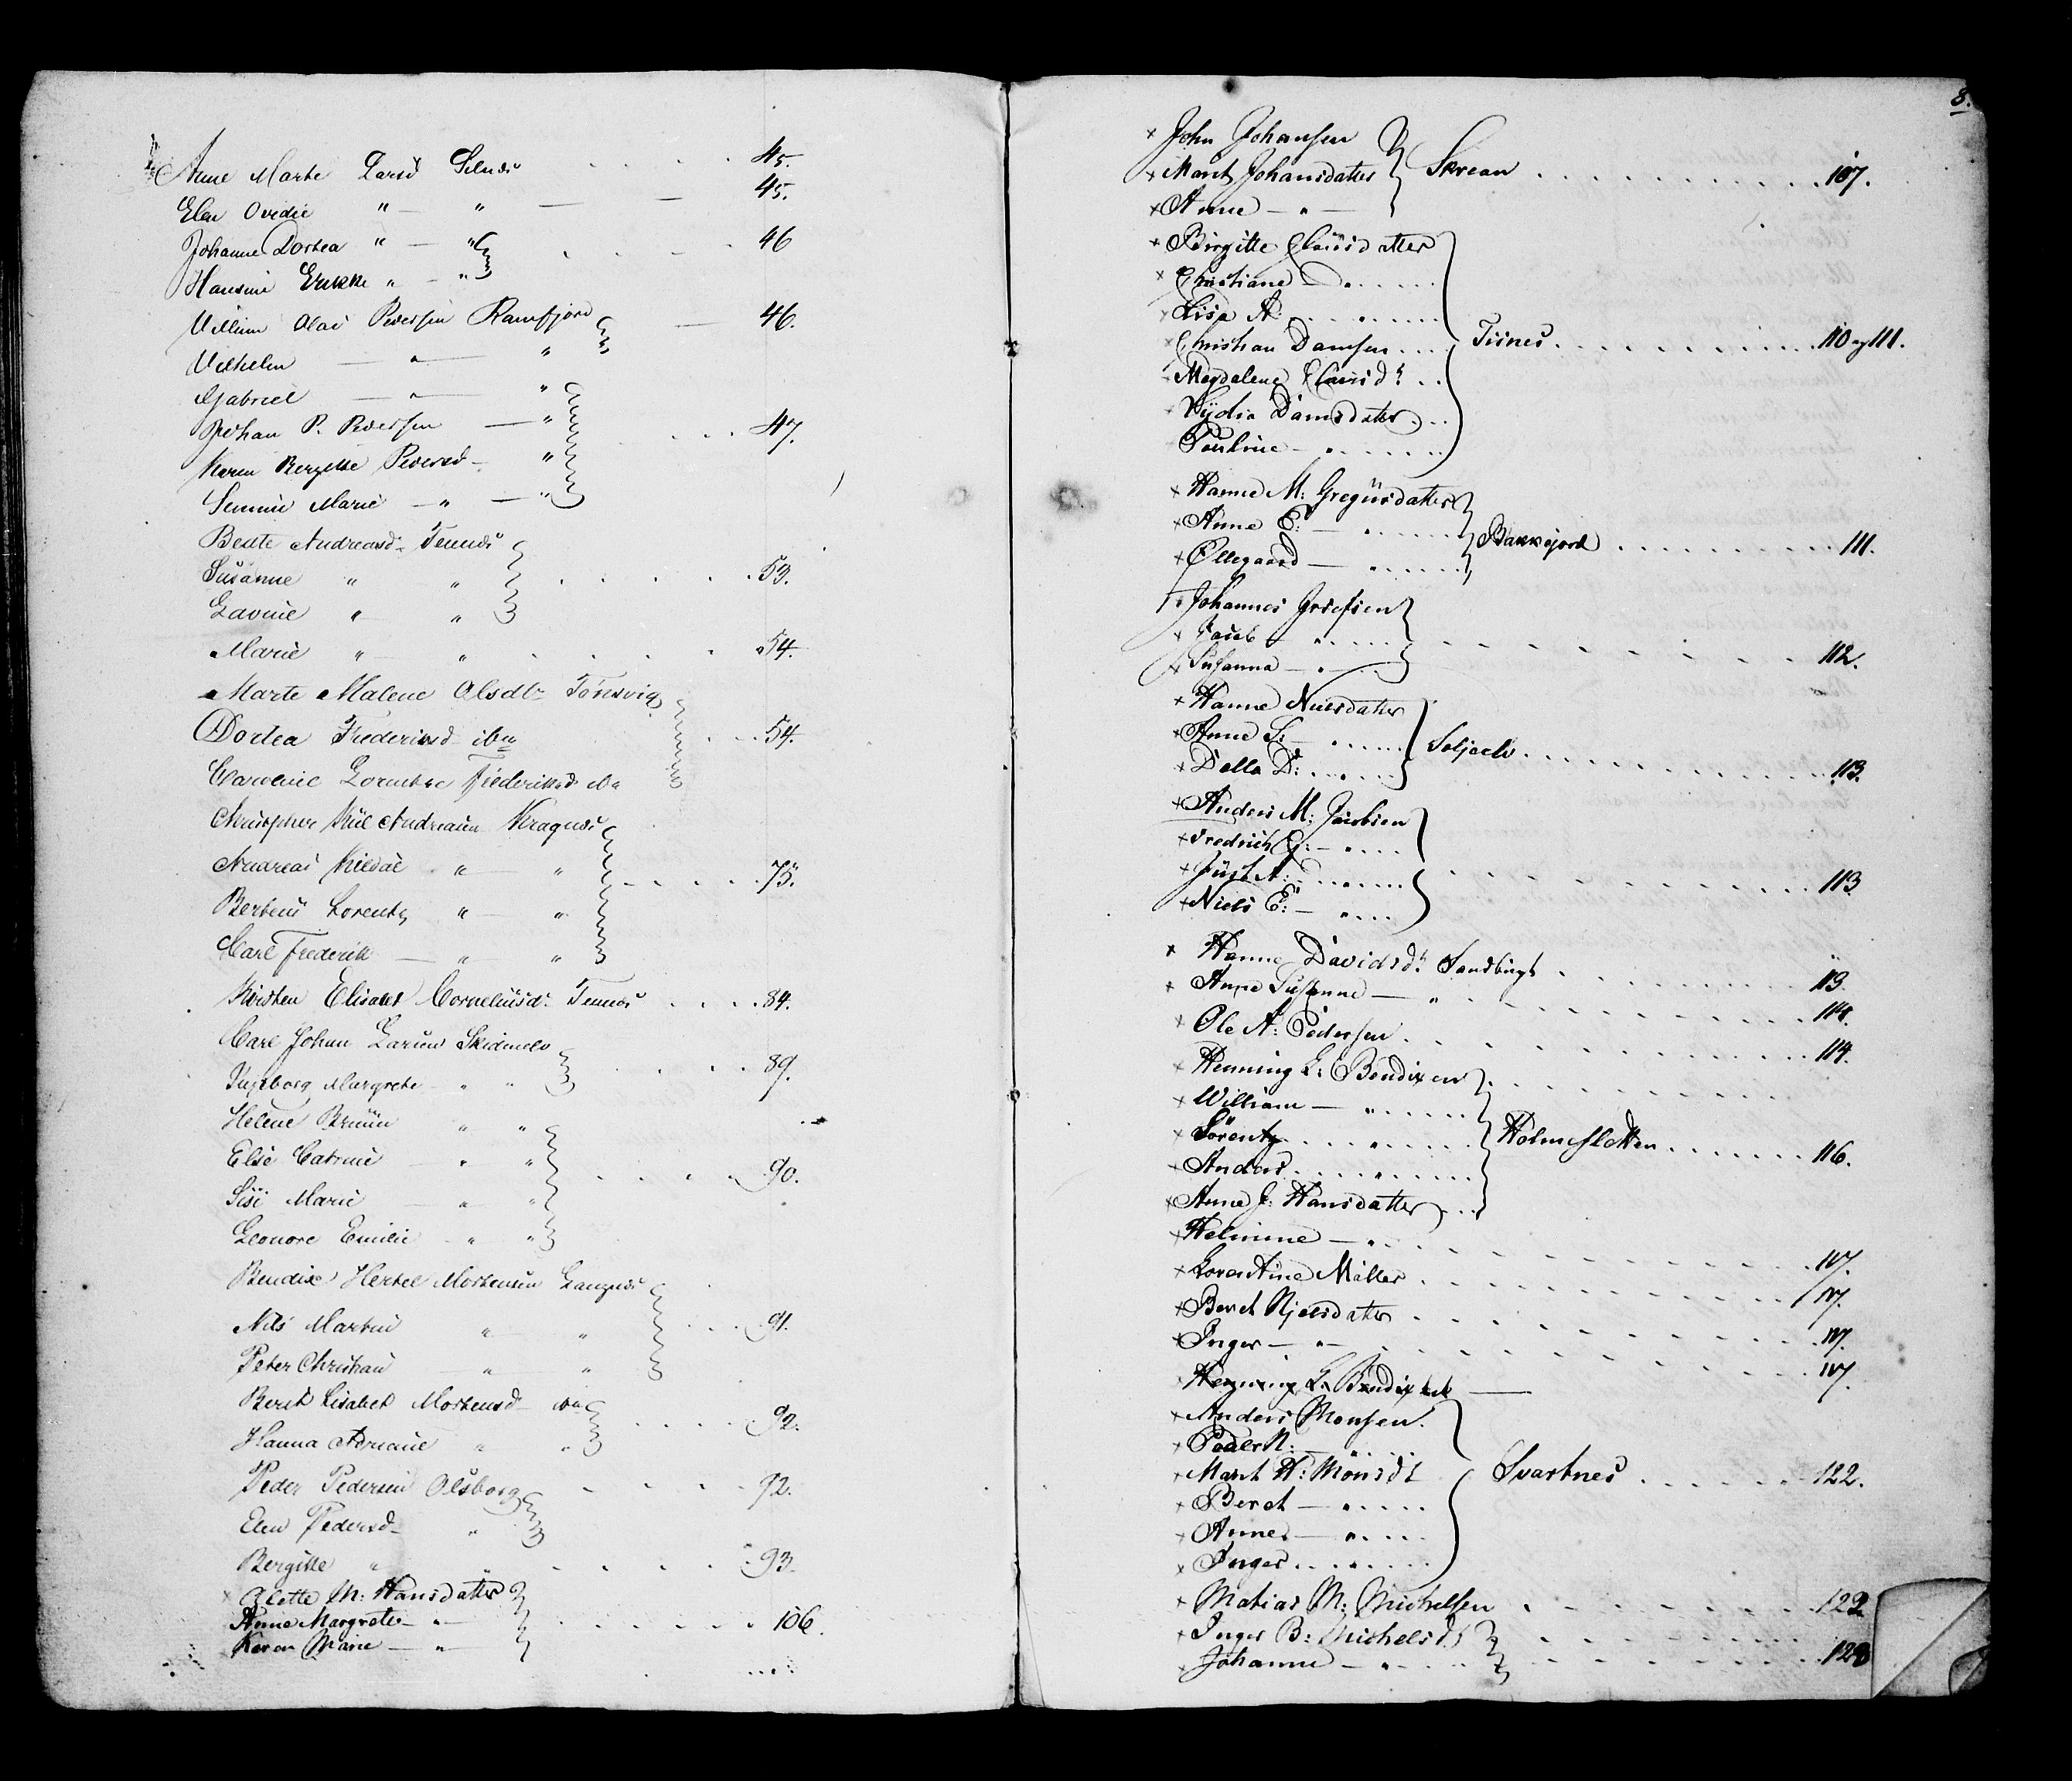 Anne Marte Larsd Selnæs . . . . 45.
Elen Ovidie " — " — — 45.
Johanne Dortea " — " . . . 46
Hansine Erikke " — "
Villum Olai Pedersen Ramfjord — 46.
Vilhelm — " — "
Gabriel — " — "
Johan P. Pedersen — " . . . 47.
Karen Bergitte Pedersd — "
Semine Marie — " — "
Beate Andreasd. Tennæs
Susanne " " . . . . . 53.
Lavine " "
Marie " " . . . . 54.
Marte Malene Olsdtr Tønsvig
Dortea Frederiksd ibm . . 54.
Frederiksd
Andreasen Kragnæs
Andreas Kildal " " . . . . 75.
Lorentz " "
Carl Frederik — " "
Kirsten Elisabet Corneliusd: Tennæs . . . . 84.
Carl Johan Larsen Skidenelv
Ingeborg Margrete " " . . . 89.
Helene Bruun " "
Else Catrine " "
Sisè Marie " " . . . . 90.
Leonore Emilie " "
Bendix Hertel Mortensen Langnæs
Nils Martin " " . . . 91.
Peter Christian " "
Berit Lisabet Mortensd
Hanna Adriane " " . . . . 92.
Peder Pedersen Olsborg . . . . 92.
Elen Pedersd "
Bergitte " " . . . . 93.
Olette M: Hansdatter
Anne Margrete — " — . . . . . . 106.
Karen Marie — " —
8.
× John Johansen
× Marit Johansdatter Skreen . . . . . . . . . . . 107.
× Anne — " —
× Birgitte Clausdatter
× Christiane — " . . . . .
× Lisa A: . . . " . . . .
× Christian Damsen . . . . Tisnes . . . . . . . . . . . 110 og 111.
× Magdalene Clausdr . .
× Lydia Damsdatter . . .
× Pouline — " . . . . . .
× Hanne M: Gregusdatter
× Anne E: — " . . . . . Bakkejord . . . . . . . . . . 111.
× Øllegaard — " . . . . .
× Johannes Josefsen
× Jacob — " . . . . . . . . . . . . . . . . 112.
× Susanna — " —
× Hanne Nielsdatter
× Anne S: — " . . . . . Seljeelv . . . . . . . . . . . . . 113.
× D: . . . " . . . .
× Anders M: Jacobsen
× Fredrich G: — " . . . .
× Just A: — " . . . . . . . . . . . . . . . 113
× Niels E: — " . . . .
× Hanne Davidsdr Sandbugt . . . . . . . . . 113.
× Anne Susanne — " . . . . . . . . . . . . 114.
× Ole A: Pedersen . . . . . . . . . . . . . . 114.
× Henning L: Bendixen . . . . . . . . . . . .
× William — " . . . . . .
× Lorentz . . . . " . . . . . Holmesletten . . . . . . . 116.
× Anders . . . . " . . . . . .
× Anne J: Hansdatter . . .
× Helmine — " . . . . . . . . . . . . . . 117.
× Lorentine Møller . . . . . . . . . . . . . . 117.
× Beret Njelsdatter . . . . . . . . . . . . . 117.
× Inger — " — . . . . . . . . . . . . . 117.
× Henning L: Bendixen —
× Anders Monsen.
× Peder N: — "
× Marit H: Monsdr Svartnes . . . . . . . 122.
× Beret — " . . . .
× Anne — " . . . .
× Inger . . . " . . . .
× Matias M: Michelsen . . . . . . . . . 122
× Inger B: Michelsdr . . . . . . . .
× Johanne — " . . . . . . . . . . . . 123